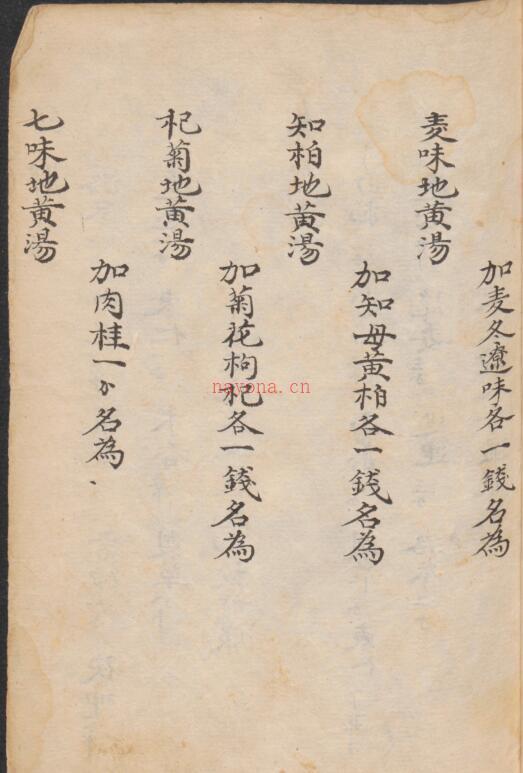 加麦冬遼味各一錢名為
麦味地黄湯
加知母黄柏各一錢名為
知柏地黄湯
加菊花枸杞各一錢名為
杞菊地黄湯
加肉桂一㆜名為、
七味地黄湯
nayona.cn